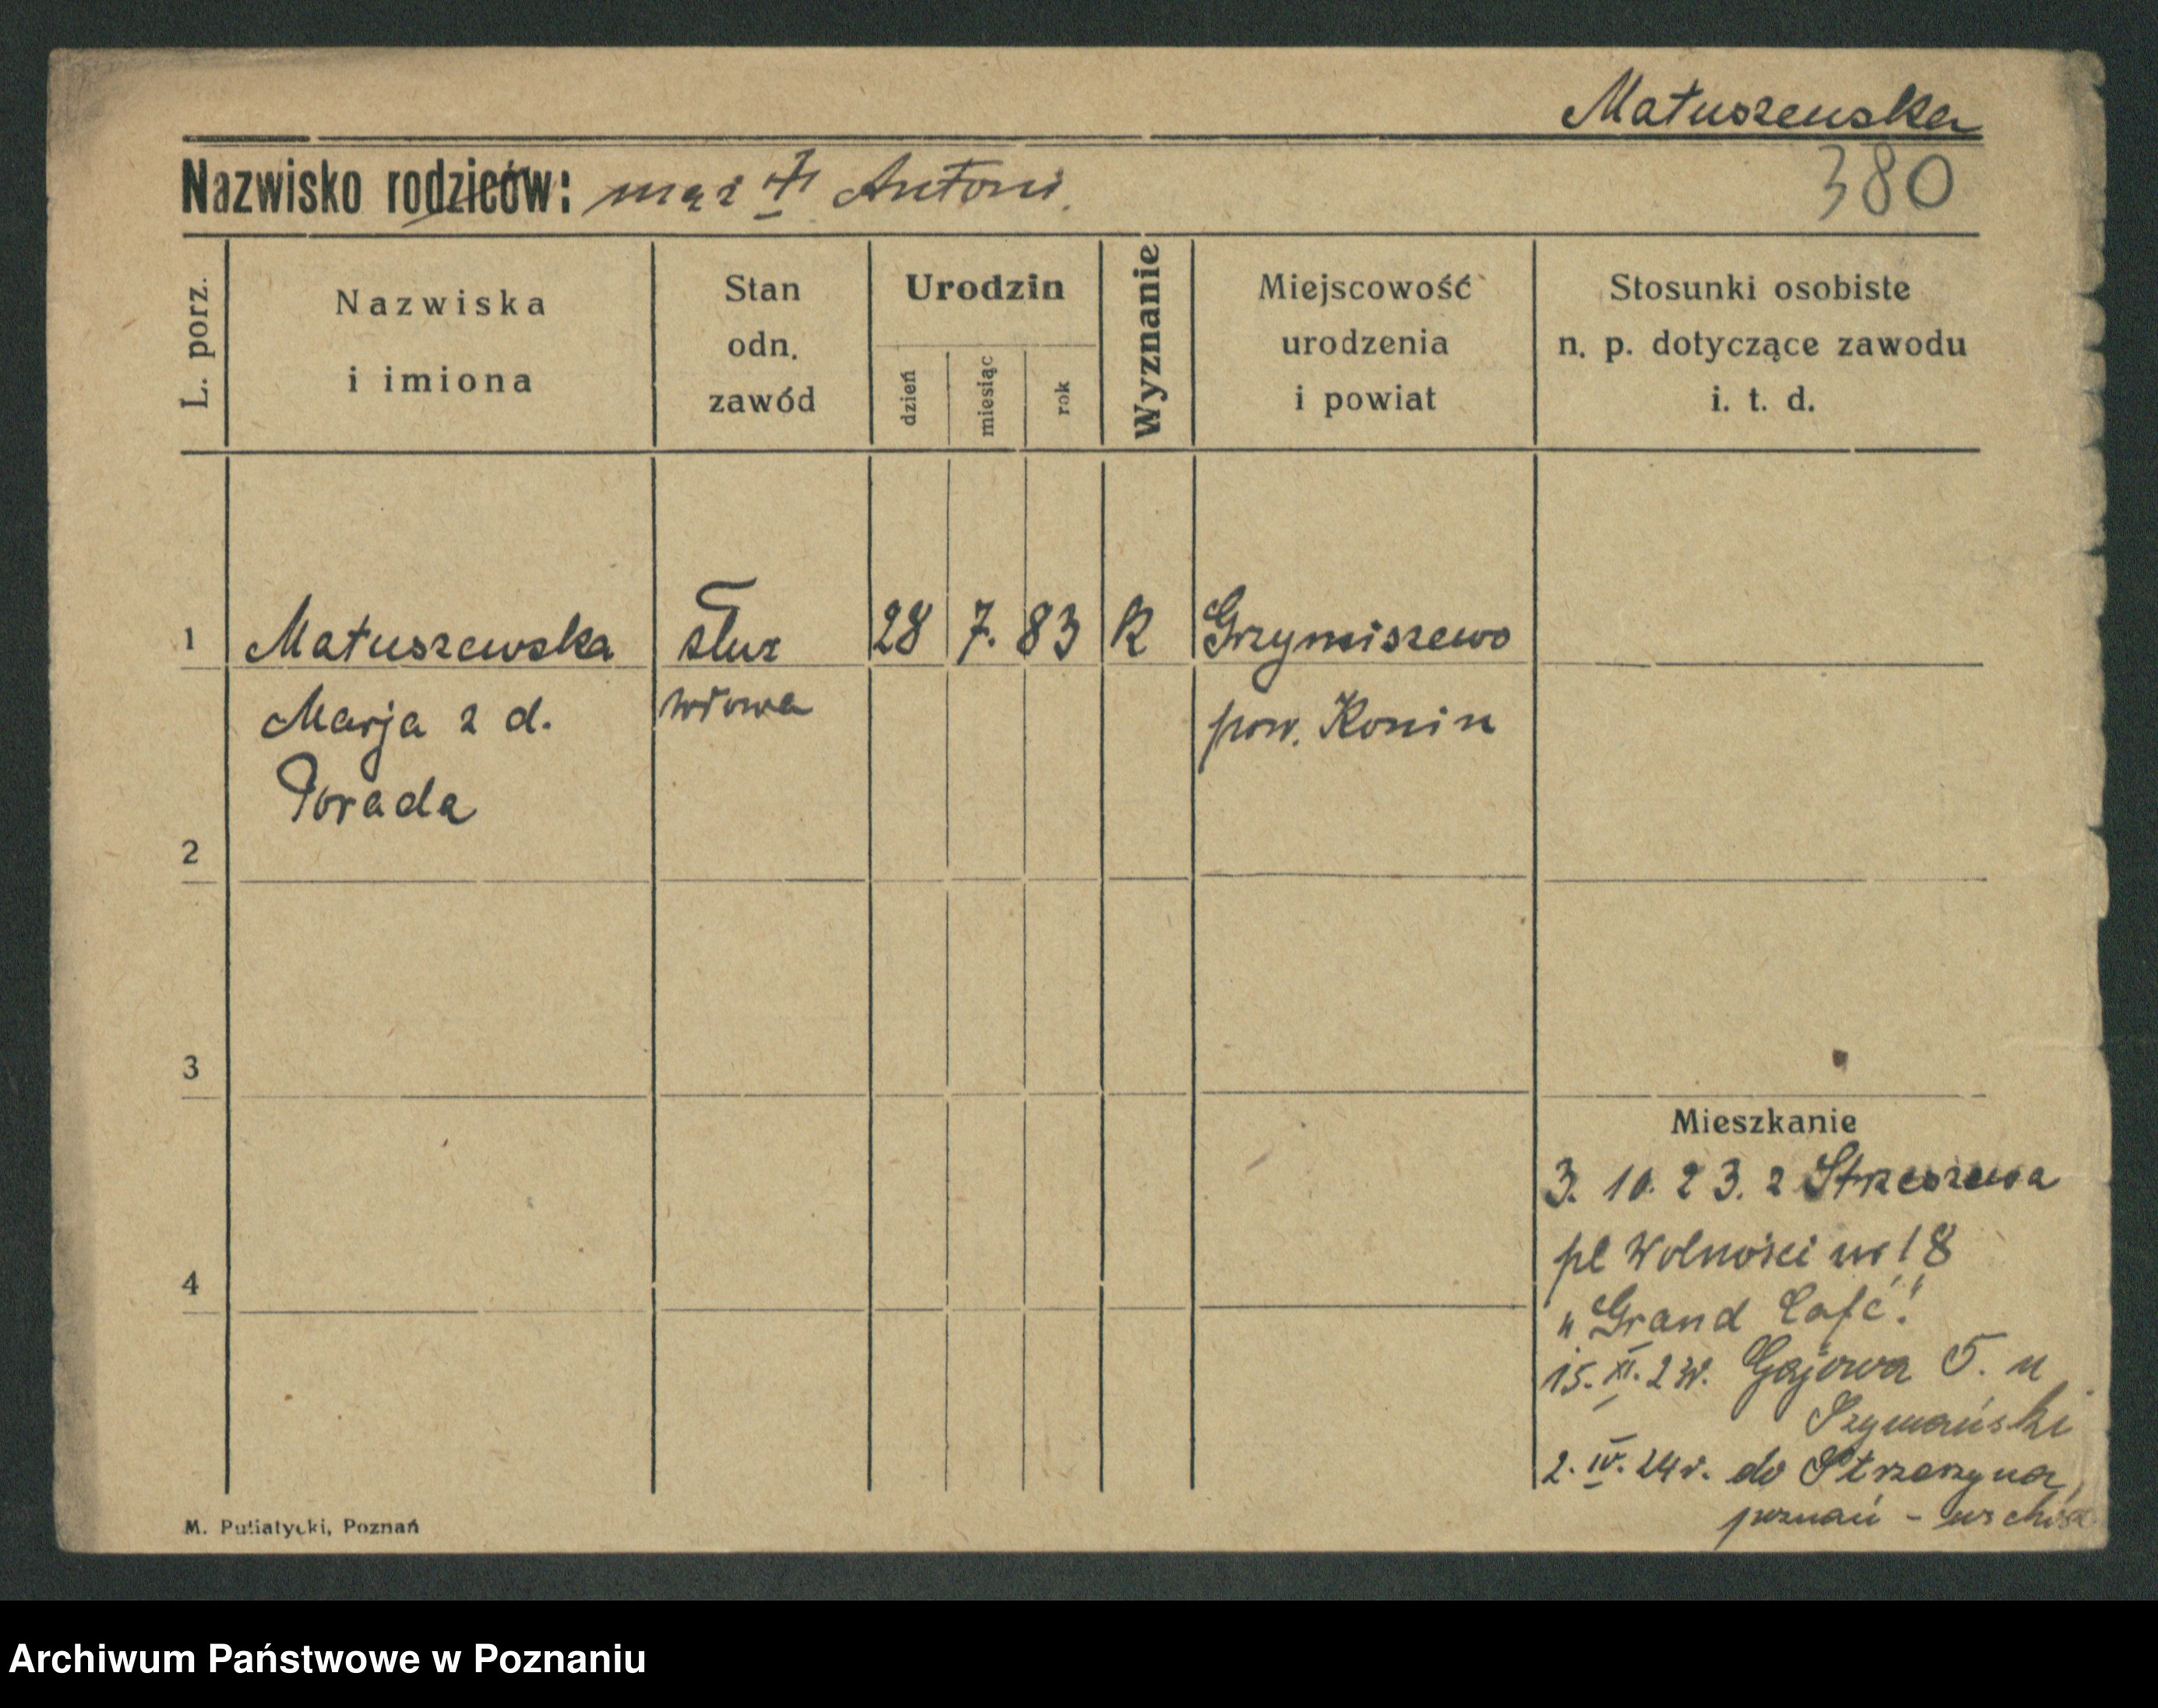 Matuszewska
Nazwisko rodziców: mąż † Antoni.
380
L. porz.
Nazwiska
i imiona
Stan
odn.
zawód
Urodzin
dzień
miesiąc
rok
Wyznanie
Miejscowość
urodzenia
i powiat
Stosunki osobiste
n. p. dotyczące zawodu
i. t. d.
1 Matuszewska służ 28 7. 83 K Grzymiszewo
Marja z d. wdowa pow. Konin
Porada
2
3
Mieszkanie
3. 10. 23. z Strzeszewa
pl Wolności nr 18
4
"Grand Café"!
15. XI. 23r. Gajowa 5. u
Szymański
2. IV. 24r. do
poznań - wschód
M. Putiatycki, Poznań
Archiwum Państwowe w Poznaniu